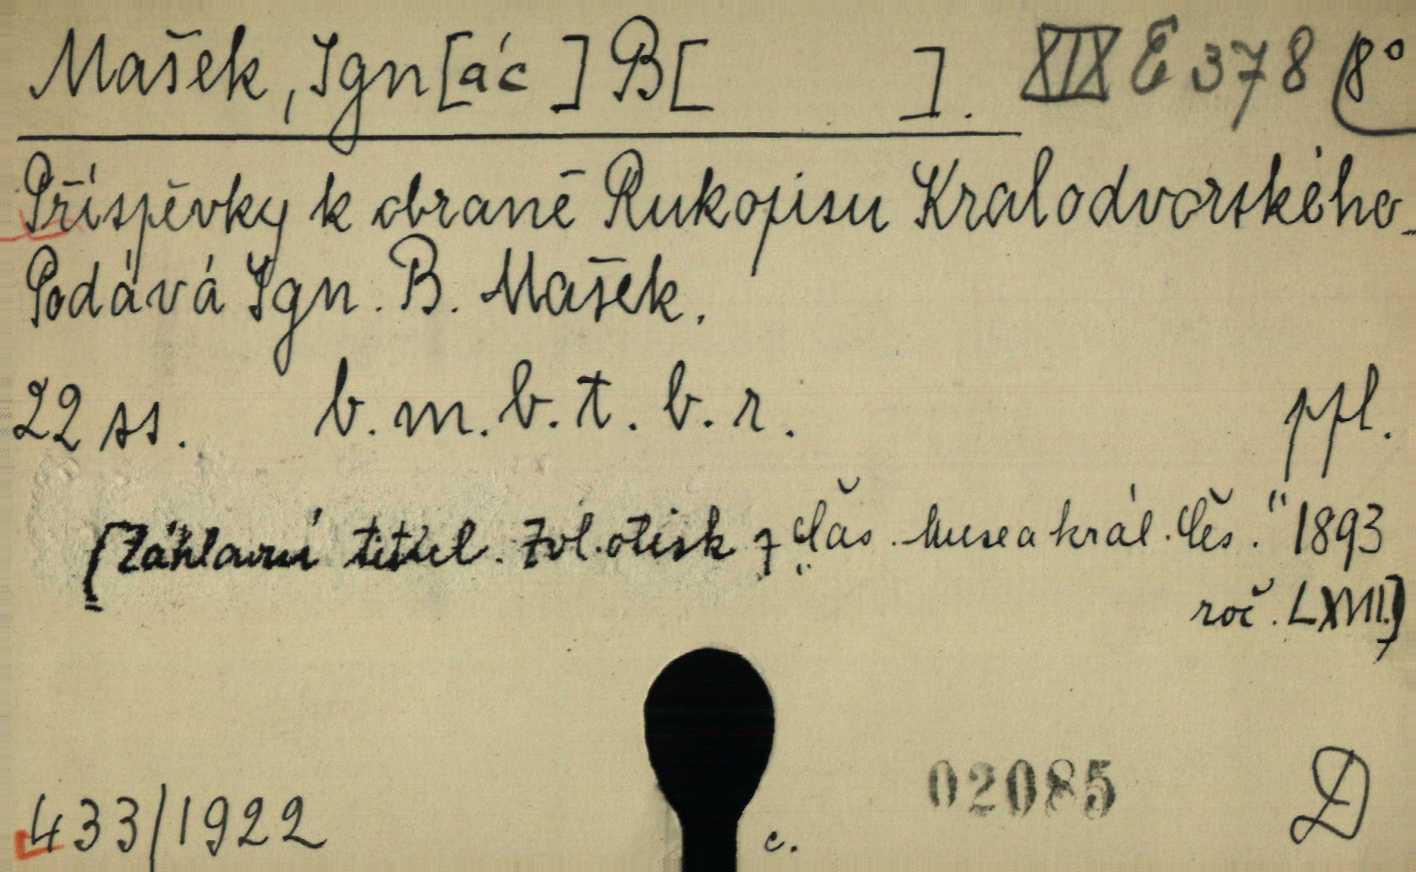 Mašek, Ign[ác ] B[ ]. XIX E 378 8°
Příspěvky k obraně Rukopisu Kralodvorského.
Podává Ign. B. Mašek.
22 ss. b. m. b. t. b. r. ppl.
[Záhlavní titul. Zvl. otisk z „Čas. Musea král. Čes." 1893
roč. LXVII.]
433/1922 c. 02085 D